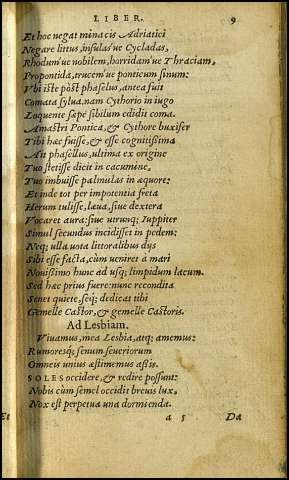 LIBER. 9
Et hoc negat minacis Adriatici
Negare littus, insulas'ue Cycladas,
Rhodum'ue nobilem, horridam'ue Thraciam,
Propontida, trucem'ue ponticum sinum:
Vbi iste pòst phaselus, antea fuit
Comata sylua. nam Cythorio in iugo
Loquente sæpe sibilum edidit coma.
Amastri Pontica, & Cythore buxifer
Tibi hæc fuisse, & esse cognitissima
Ait phasellus, ultima ex origine
Tuo stetisse dicit in cacumine,
Tuo imbuisse palmulas in æquore:
Et inde tot per impotentia freta
Herum tulisse, læua, siue dextera
Vocaret aura: siue utrunq; Iuppiter
Simul secundus incidisset in pedem:
Neq; ulla uota littoralibus dijs
Sibi esse facta, cùm ueniret a mari
Nouißimo hunc ad usq; limpidum lacum.
Sed hæc prius fuere: nunc recondita
Senet quiete, seq; dedicat tibi
Gemelle Castor, & gemelle Castoris.
Ad Lesbiam.
Viuamus, mea Lesbia, atq; amemus:
Rumoresq; senum seueriorum
Omneis unius æstimemus aßis.
SOLES occidere, & redire possunt:
Nobis cùm semel occidit breuis lux,
Nox est perpetua una dormienda.
a 5 Da